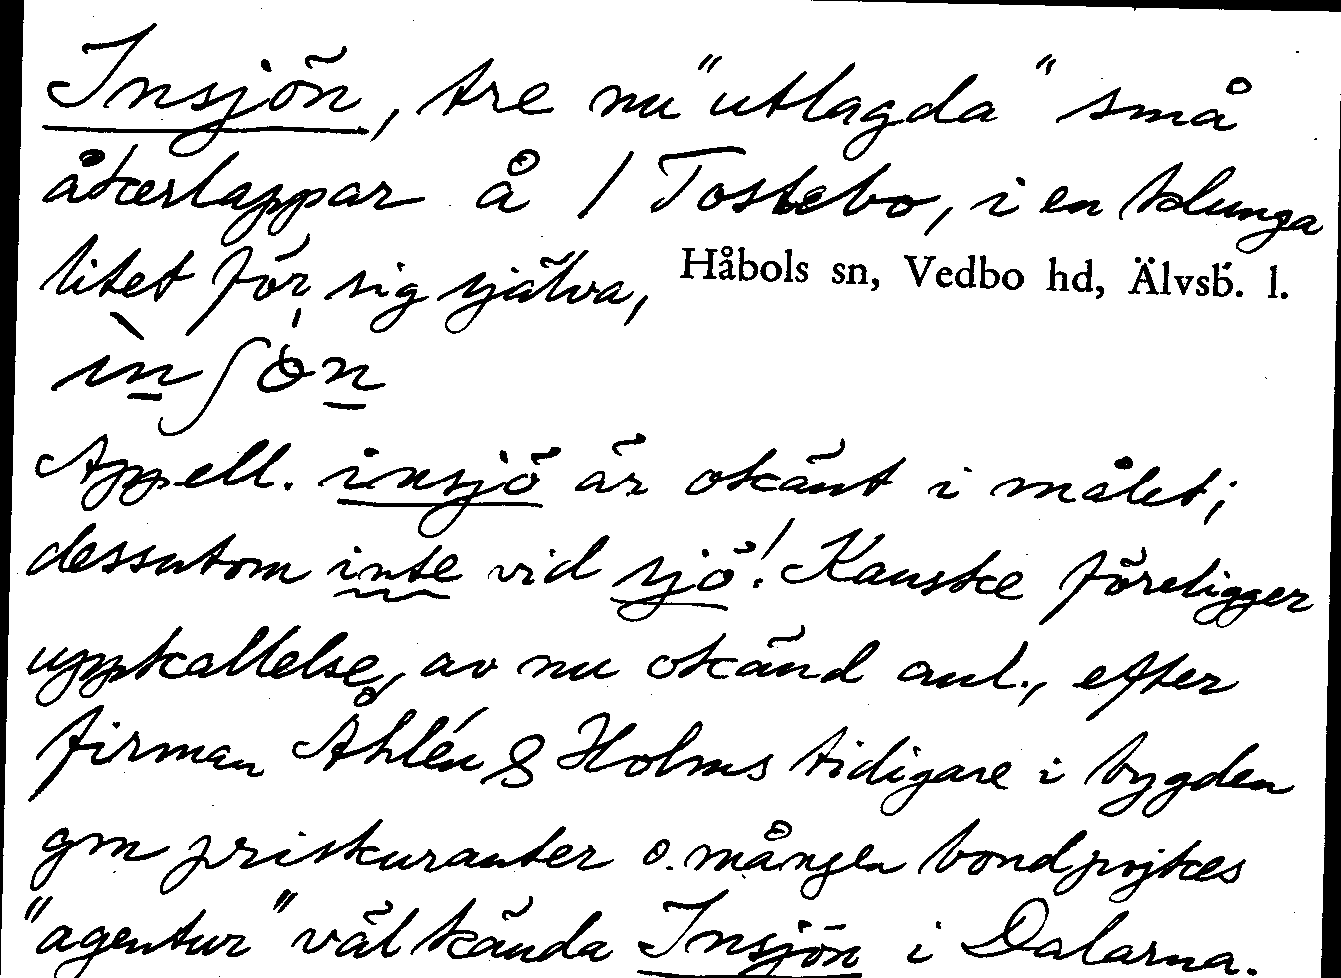 Insjön, tre nu "utlagda" små
åkerlappar å / Tostebo, i en klunga
litet för sig själva, Håbols sn, Vedbo hd, Älvsb. l.
ìnʃòn
Appell. insjö är okänt i målet;
dessutom inte vid sjö! Kanske föreligger
uppkallelse, av nu okänd anl., efter
firman Åhlén & Holms tidigare i bygden
gm priskuranter o. mången bondpojkes
"agentur" väl kända Insjön i Dalarna.